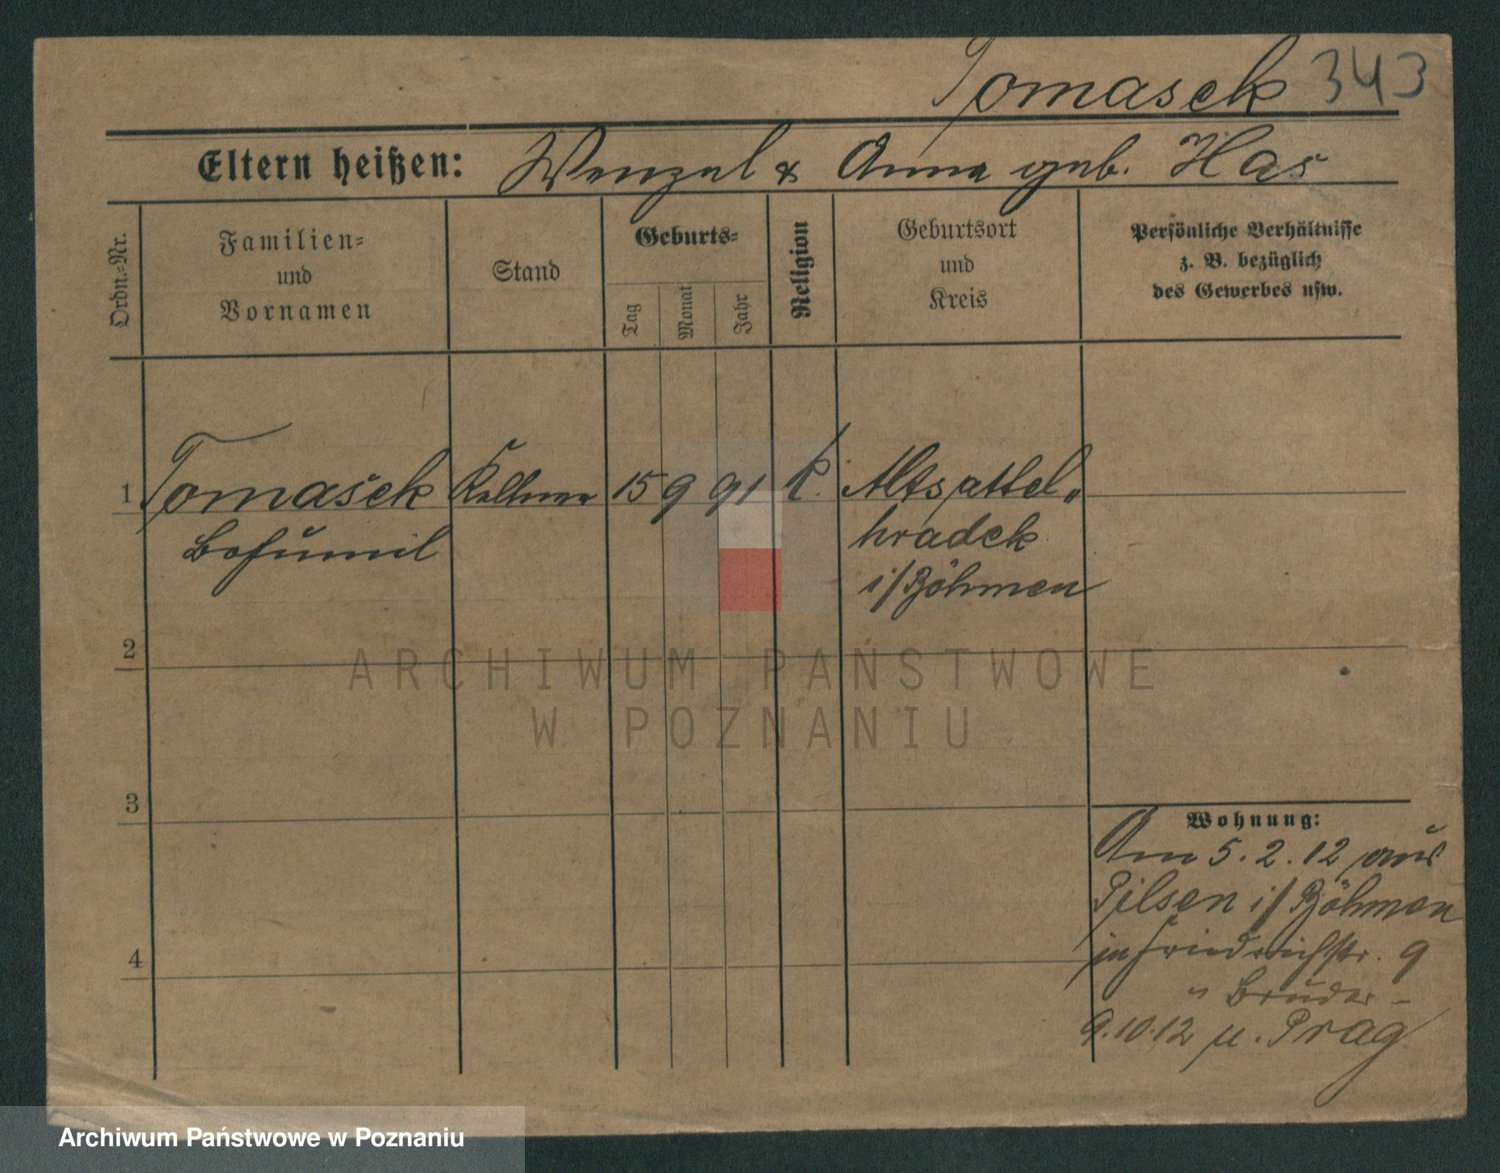 Tomasek 343
Eltern heißen: Wenzel & Anna geb. Has
Ordn.=Nr.
Familien=
und
Vornamen
Stand
Geburts=
Tag
Monat
Jahr
Religion
Geburtsort
und
Kreis
Persönliche Verhältnisse
z. B. bezüglich
des Gewerbes usw.
1 Tomašek Kellner 15 9 91 k. Altsattel„
Bohumil hradek
i/Böhmen
2
3
4
ARCHIWUM PAŃSTWOWE
W POZNANIU
Wohnung:
Am 5.2.12 aus
Pilsen i/Böhmen
in Friedrichstr. 9
" Bruder -
9.10.12 n. Prag
Archiwum Państwowe w Poznaniu